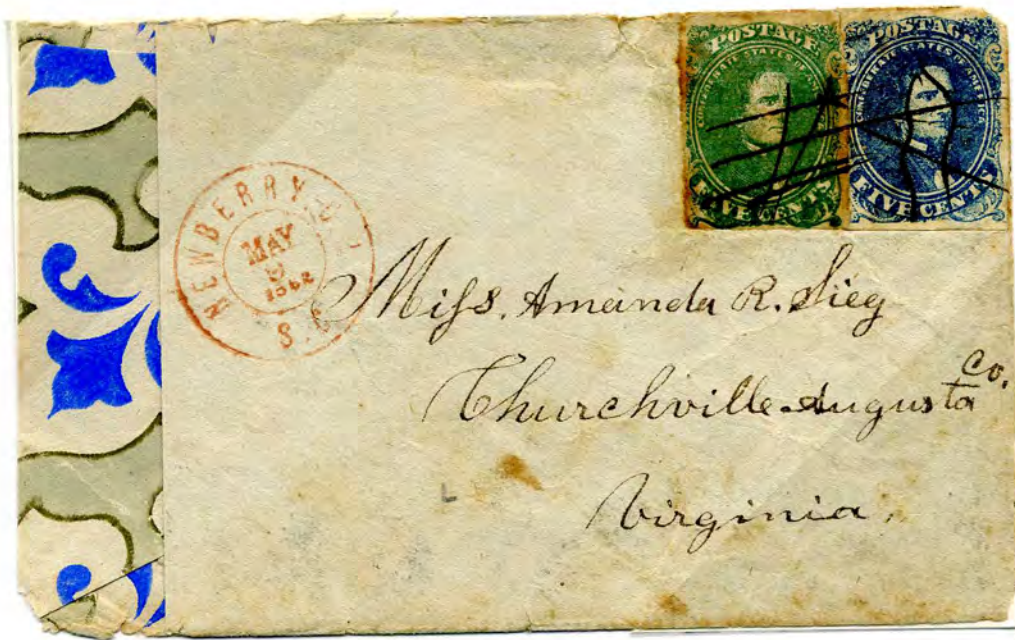 POSTAGE
CONFEDERATE STATES OF AMERICA
FIVE CENTS
POSTAGE
CONFEDERATE STATES OF AMERICA
FIVE CENTS
NEWBERRY
MAY
9
1862
S.
Miſs. Amanda R. Sieg
Churchville Augusta Co.
Virginia.